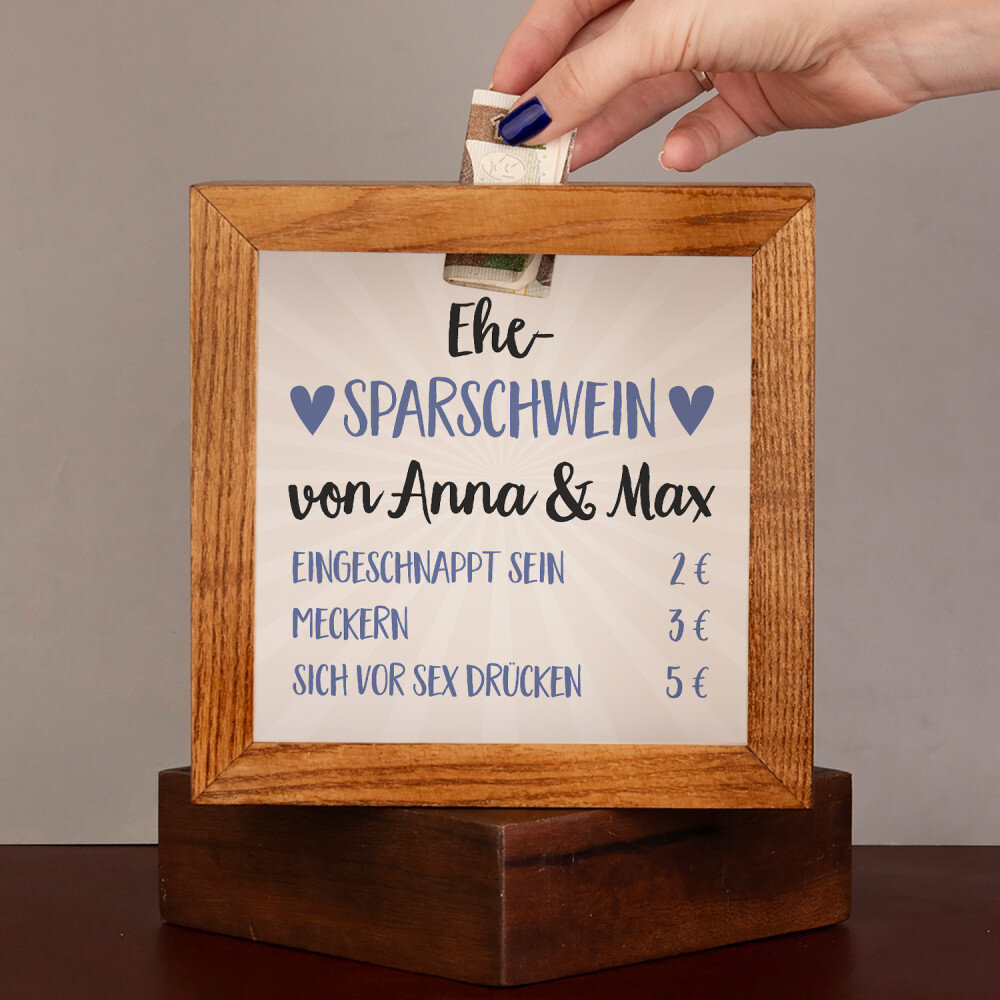 Ehe-
SPARSCHWEIN
von Anna & Max
EINGESCHNAPPT SEIN 2 €
MECKERN 3 €
SICH VOR SEX DRÜCKEN 5 €